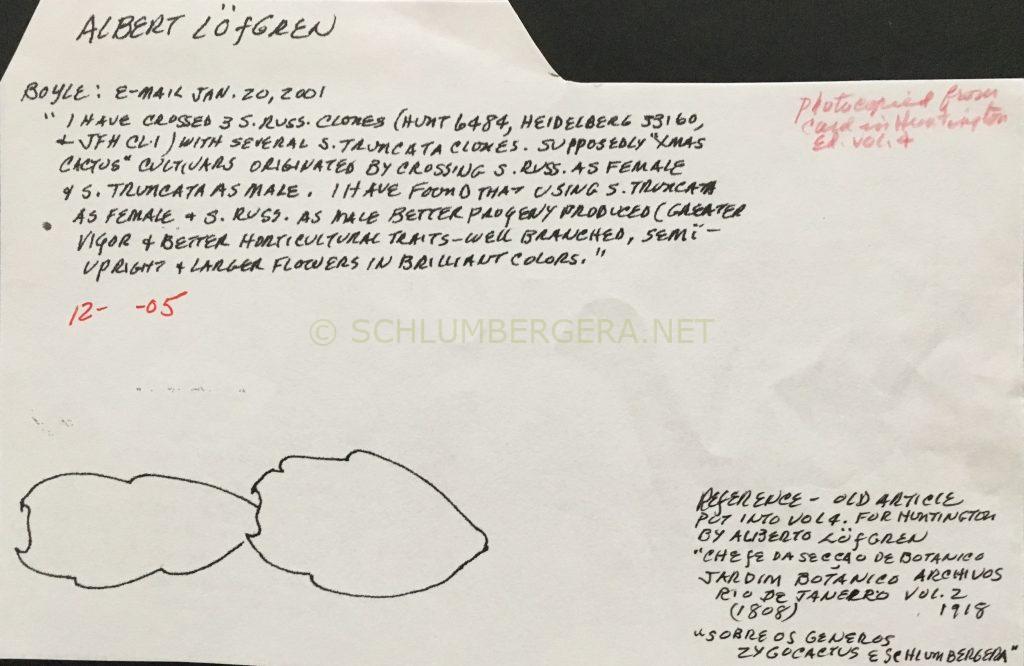 ALBERT LÖFGREN
BOYLE: E-MAIL JAN. 20, 2001
"I HAVE CROSSED 3 S. RUSS. CLONES (HUNT 6484, HEIDELBERG 53160,
+ JFH CL1) WITH SEVERAL S. TRUNCATA CLONES. SUPPOSEDLY "XMAS
CACTUS" CULTIVARS ORIGINATED BY CROSSING S. RUSS. AS FEMALE
& S. TRUNCATA AS MALE. I HAVE FOUND THAT USING S. TRUNCATA
AS FEMALE & S. RUSS. AS MALE BETTER PROGENY PRODUCED (GREATER
VIGOR & BETTER HORTICULTURAL TRAITS-WELL BRANCHED, SEMI-
UPRIGHT & LARGER FLOWERS IN BRILLIANT COLORS."
Photocopied from
card in Huntington
Ed. Vol. 4
12- -05
© SCHLUMBERGERA.NET
REFERENCE - OLD ARTICLE
PUT INTO VOL 4. FOR HUNTINGTON
BY ALBERTO LÖFGREN
"CHEFE DA SECÇÃO DE BOTANICO
JARDIM BOTÂNICO ARCHIVOS
RIO DE JANERRO VOL. 2
(1808) 1918
"SOBRE OS GENEROS
ZYGOCACTUS E SCHLUMBERGERA"